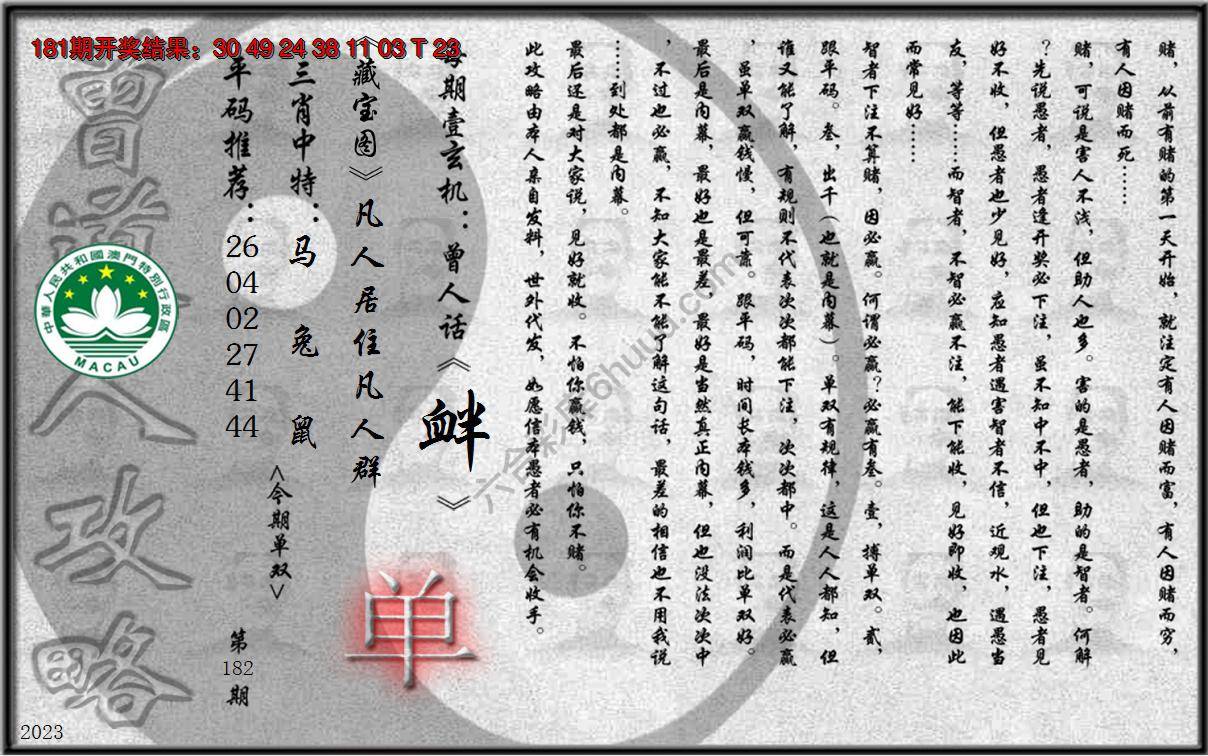 181期开奖结果：30 49 24 38 11 03 T 23
赌，从前有赌的第一天开始，就注定有人因赌而富，有人因赌而穷，
有人因赌而死……
赌，可说是害人不浅，但助人也多。害的是愚者，助的是智者。何解
？先说愚者，愚者逢开奖必下注，虽不知中不中，但也下注，愚者见
好不收，但愚者也少见好，应知愚者遇害智者不信，近观水，遇愚当
友，等等……而智者，不智必赢不注，能下能收，见好即收，也因此
而常见好……
智者下注不算赌，因必赢。何谓必赢？必赢有叁。壹，搏单双。贰，
跟平码。叁，出千（也就是内幕）。单双有规律，这是人人都知，但
谁又能了解，有规则不代表次次都能下注，次次都中。而是代表必赢
，虽单双赢钱慢，但可靠。跟平码，时间长本钱多，利润比单双好。
最后是内幕，最好也是最差，最好是当然真正内幕，但也没法次次中
，不过也必赢，不知大家能不能了解这句话，最差的相信也不用我说
……到处都是内幕。
最后还是对大家说，见好就收。不怕你赢钱，只怕你不赌。
此攻略由本人亲自发料，世外代发，如愿信本愚者必有机会收手。
每期壹玄机：曾人话《衅》
《藏宝图》凡人居住凡人群
单
三肖中特：马 兔 鼠
<今期单双>
平码推荐：26 04 02 27 41 44
第182期
曾道人攻略
中華人民共和國澳門特別行政區
MACAU
2023